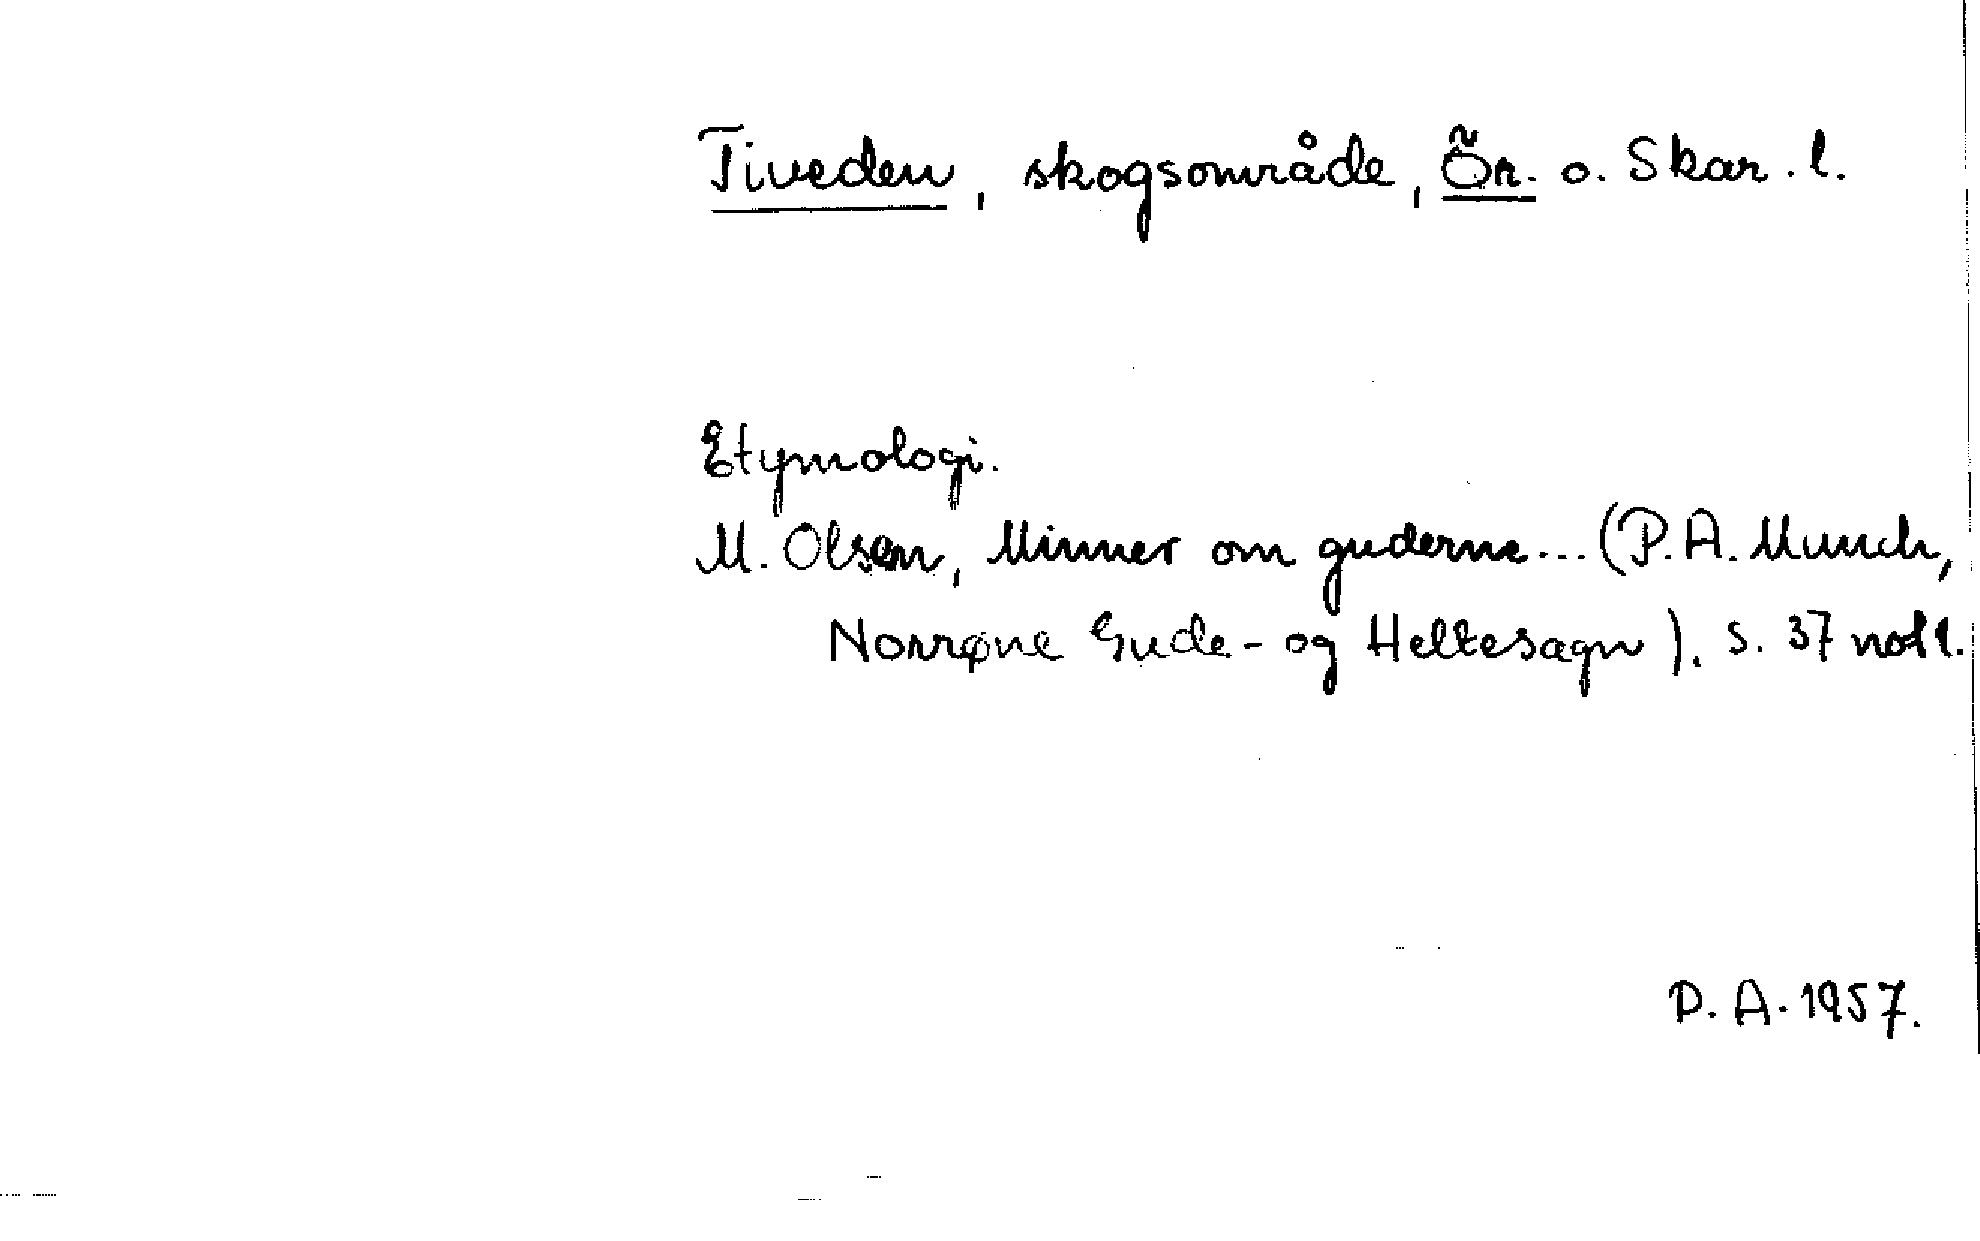 Tiveden, skogsområde, Ör. o. Skar. l.
Etymologi.
M. Olsen, Minner om guderne... (P. A. Munch,
Norrøne Gude- og Heltesagn). s. 37 not 1.
D. A. 1957.